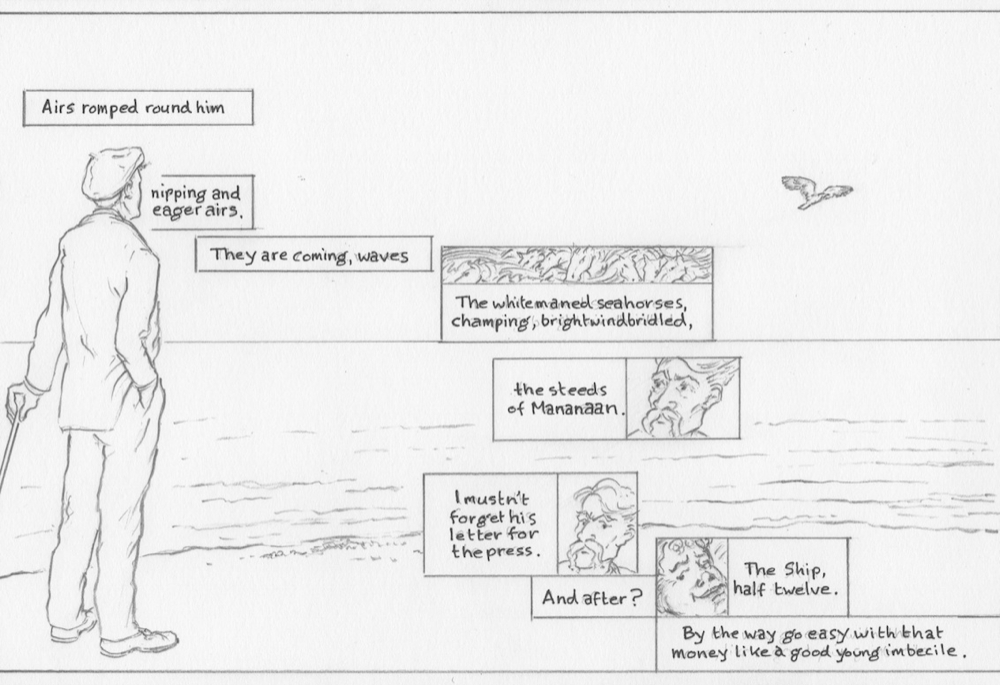 Airs romped round him
nipping and
eager airs.
They are coming, waves
The whitemaned seahorses,
champing, brightwindbridled,
the steeds
of Mananaan.
I mustn't
forget his
letter for
the press.
And after?
The Ship,
half twelve.
By the way go easy with that
money like a good young imbecile.